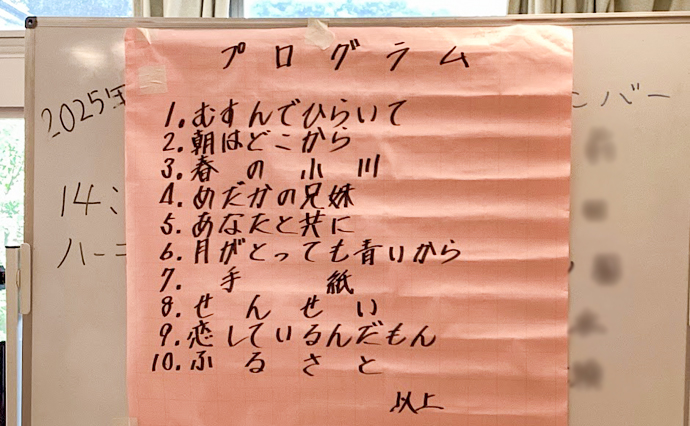 プログラム
2025年
ンバー
1. むすんでひらいて
2. 朝はどこから
3. 春の小川
14:
4. めだかの兄妹
5. あなたと共に
ハーモ
6. 月がとっても青いから
7. 手紙
8. せんせい
9. 恋しているんだもん
10. ふるさと
以上